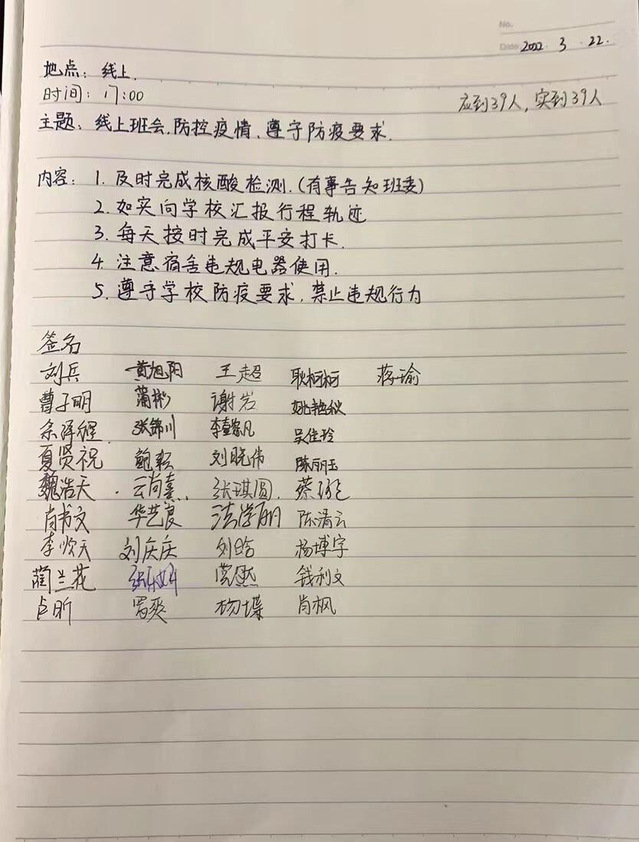 No.
Date 2022. 3. 22.
地点：线上.
时间：17:00
应到39人，实到39人
主题：线上班会.防控疫情.遵守防疫要求.
内容：1. 及时完成核酸检测.(有事告知班委)
2. 如实向学校汇报行程轨迹
3. 每天按时完成平安打卡.
4. 注意宿舍违规电器使用.
5. 遵守学校防疫要求.禁止违规行为
签名
刘兵 黄旭阳 王超 耿柯柯 蒋瑜
曹子明 蒲彬 谢岩
余泽程 张锦川 吴佳玲
夏贤祝 刘晓伟 陈丽玉
魏浩天 张琪圆
肖书文 华艺夏 陈清云
李焕天 刘庆庆 刘皓 杨博宇
蔺兰花 钱利文
卢昕 罗爽 杨堞 肖枫